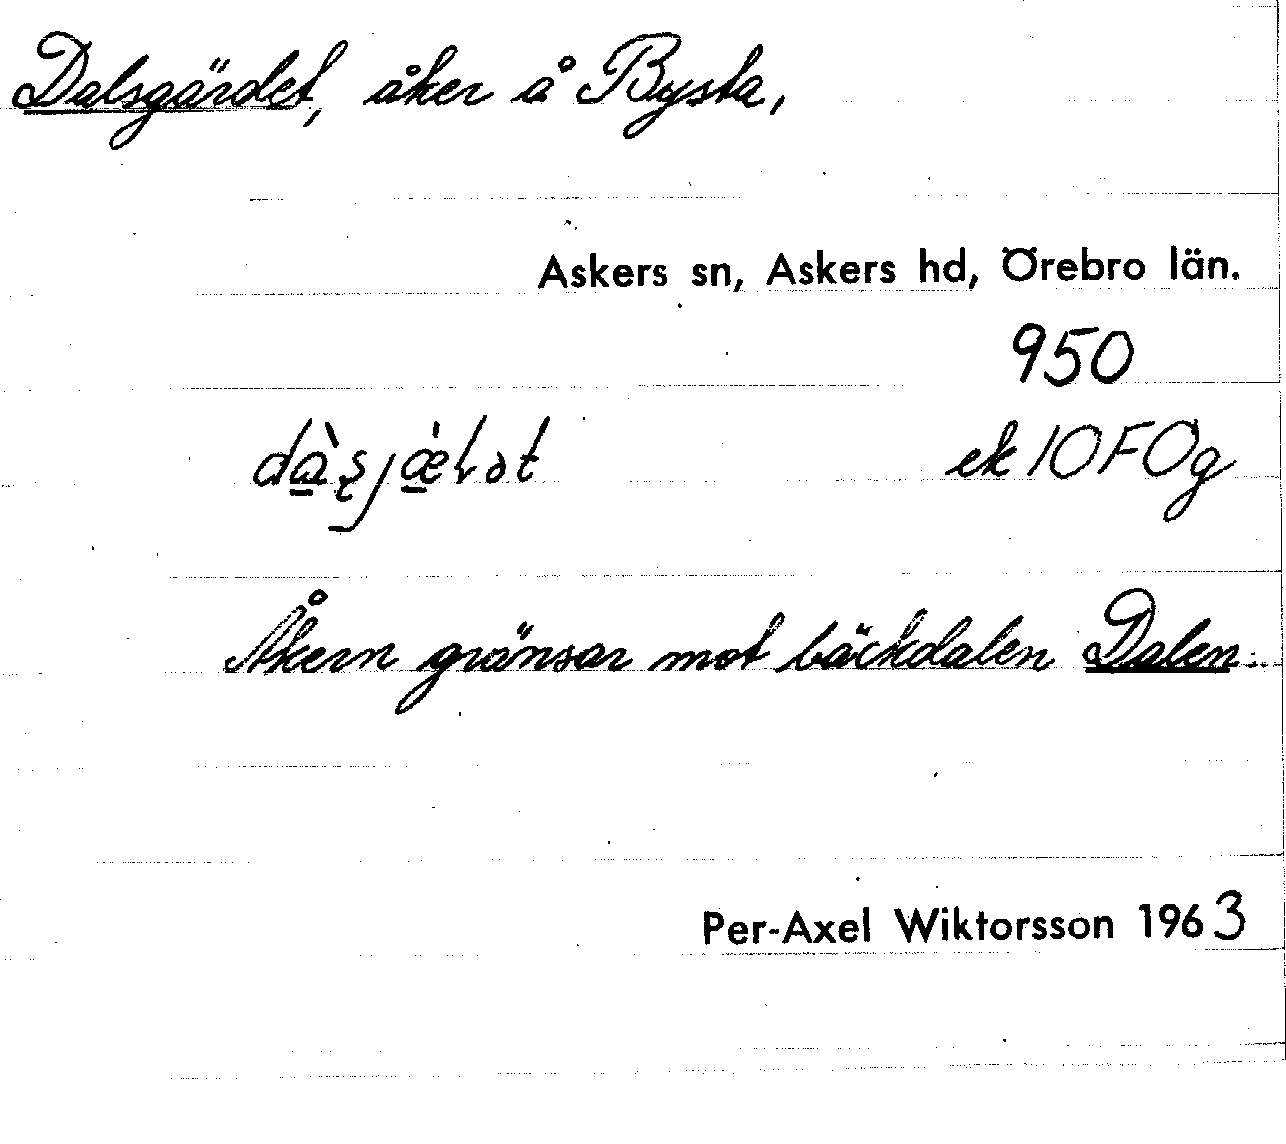 Dalsgärdet, åker å Bysta,
Askers sn, Askers hd, Örebro län.
950
ek 10F0g
Åkern gränsar mot bäckdalen Dalen.
Per-Axel Wiktorsson 1963